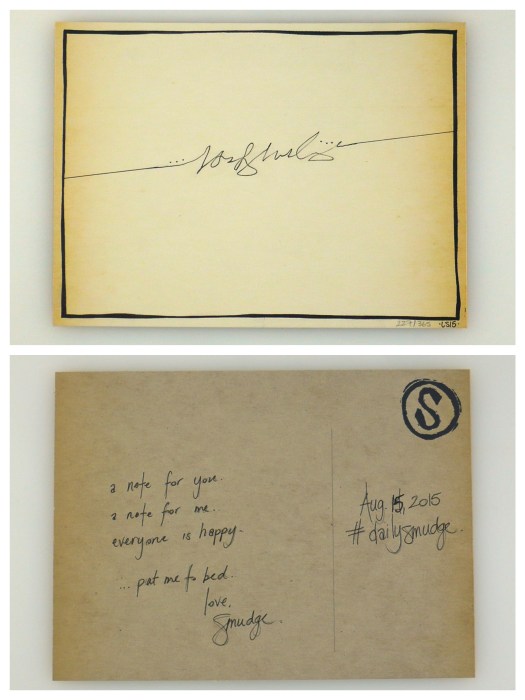 227/365 ·LS15·
S
a note for you.
a note for me.
everyone is happy.
... put me to bed.
love,
Smudge.
Aug. 15, 2015
#dailysmudge.